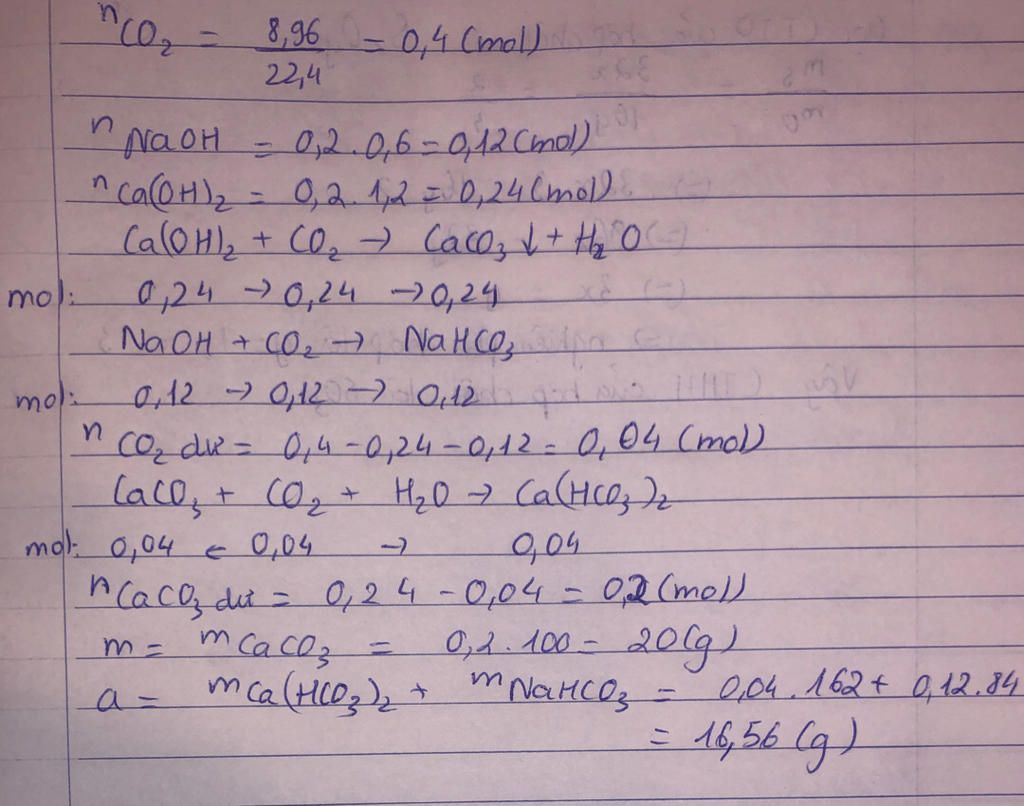 nCO₂ = 8,96/22,4 = 0,4 (mol)
nNaOH = 0,2.0,6 = 0,12 (mol)
nCa(OH)₂ = 0,2.1,2 = 0,24 (mol)
Ca(OH)₂ + CO₂ → CaCO₃↓ + H₂O
mol: 0,24 → 0,24 → 0,24
NaOH + CO₂ → NaHCO₃
mol: 0,12 → 0,12 → 0,12
nCO₂ dư = 0,4 - 0,24 - 0,12 = 0,04 (mol)
CaCO₃ + CO₂ + H₂O → Ca(HCO₃)₂
mol: 0,04 ← 0,04 → 0,04
nCaCO₃ dư = 0,24 - 0,04 = 0,2 (mol)
m = mCaCO₃ = 0,2.100 = 20(g)
a = mCa(HCO₃)₂ + mNaHCO₃ = 0,04.162 + 0,12.84
= 16,56 (g)